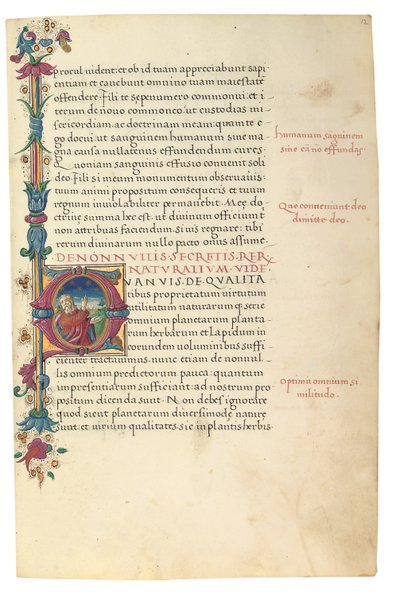 12
procul uident: et ob id tuam appreciabunt sapi
entiam et cauebunt omnino tuam maiestate
offendere. Fili te sepenumero commonui: et i
terum de nouo commoneo: ut custodias mi
sericordiam: ac doctrinam meam: quante
ego docui: ut sanguinem humanum sine ma
gna causa nullatenus effundendum cures:
Quoniam sanguinis effusio conuenit soli
deo. Fili si meum monumentum obseruaris:
tuum animi propositum consequeris et tuum
regnum inuiolabiliter permanebit. Mee do
ctrine summa hec est: ut diuinum officium
non attribuas faciendum. si uis regnare: tibi
rerum diuinarum nullo pacto onus assume.
humanum saguinem
sine ca non effundas
Que conueniunt deo
dimitte deo.
DE NONNVLLIS SECRETIS RERV
NATVRALIVM VIDE
VANVIS. DE QVALITA
tibus proprietatum uirtutum
utilitatum naturarumque serie
omnium planetarum planta
rum herbarum et Lapidum in
eorundem uoluminibus suffi
cienter tractauimus: nunc etiam de nonnul
lis omnium predictorum pauca: quantum
impresentiarum sufficiant: ad nostrum pro
positum dicenda sunt. Non debes ignorare
quod sicut planetarum diuersimode nature
sunt: et uirium qualitates: sic in plantis herbis
Optima omnium si
militudo.